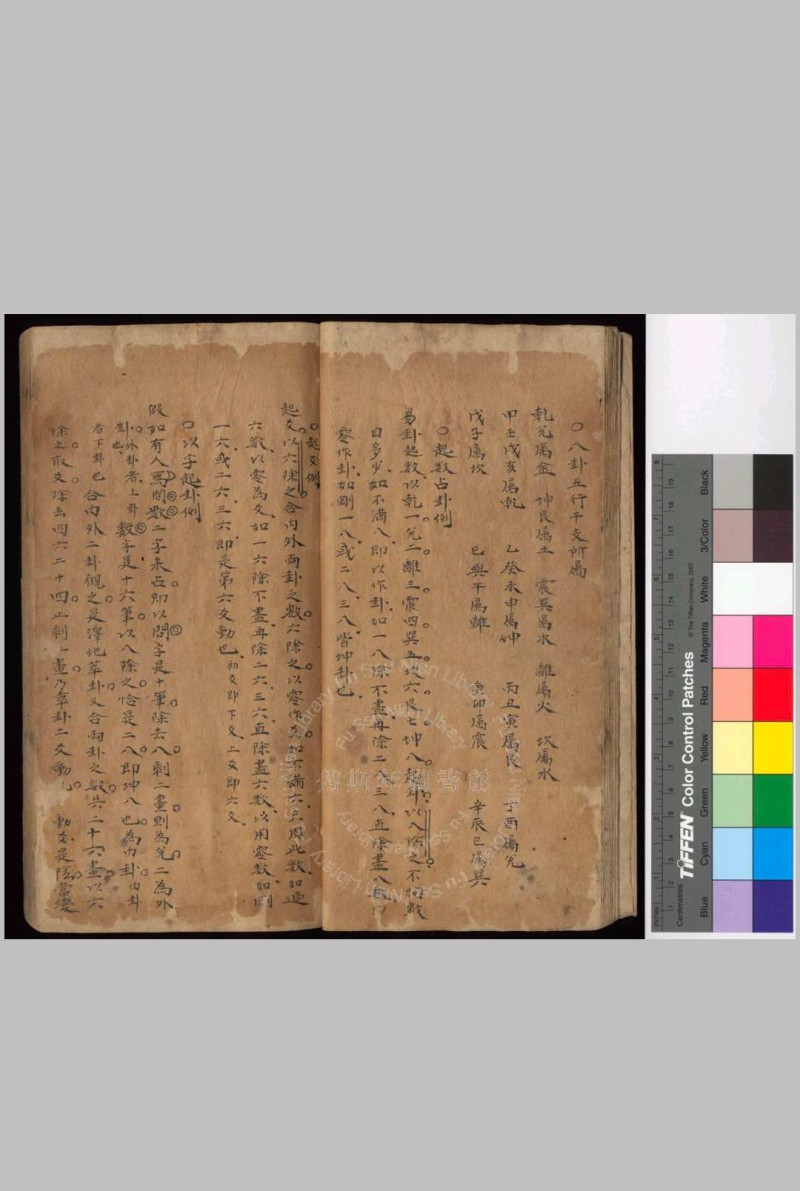 ○八卦五行干支所屬
乾兌屬金 坤艮屬土 震巽屬木 離屬火 坎屬水
甲壬戊亥屬乾 乙癸未申屬坤 丙丑寅屬艮 丁酉屬兌
戊子屬坎 己與午屬離 庚卯屬震 辛辰巳屬巽
○起數占卦例
易卦起數以乾一兌二離三震四巽五坎六艮七坤八起卦以八除之不拘數
目多少如不滿八即以作卦如一八除不盡再除二八三八直除盡八數以
零作卦如剛一八或二八三八皆坤卦也
○起爻例
起爻以六除之合內外兩卦之數六除之以零作爻如不滿六只用此數如過
六數以零為爻如一六除不盡再除二六三六直除盡六數以用零數如剛
一六或二六三六即是第六爻動也初爻即下爻上爻即六爻
○以字起卦例
假如有人寫問數二字來占即以問字是十筆除去八剩二畫則為兌二為外
卦也外卦者上卦 數字是十六筆以八除之恰是二八即坤八也為內卦內卦
者下卦也 合內外二卦觀之是澤地萃卦又合兩卦之數共二十六畫以六
除之取爻除去四六二十四止剩二畫乃萃卦二爻動也 動爻是陰當變
傅斯年圖書館
Fu Ssu-Nien Library
TIFFEN Color Control Patches
© The Tiffen Company, 2007
Centimetres
Inches
Blue
Cyan
Green
Yellow
Red
Magenta
White
3/Color
Black